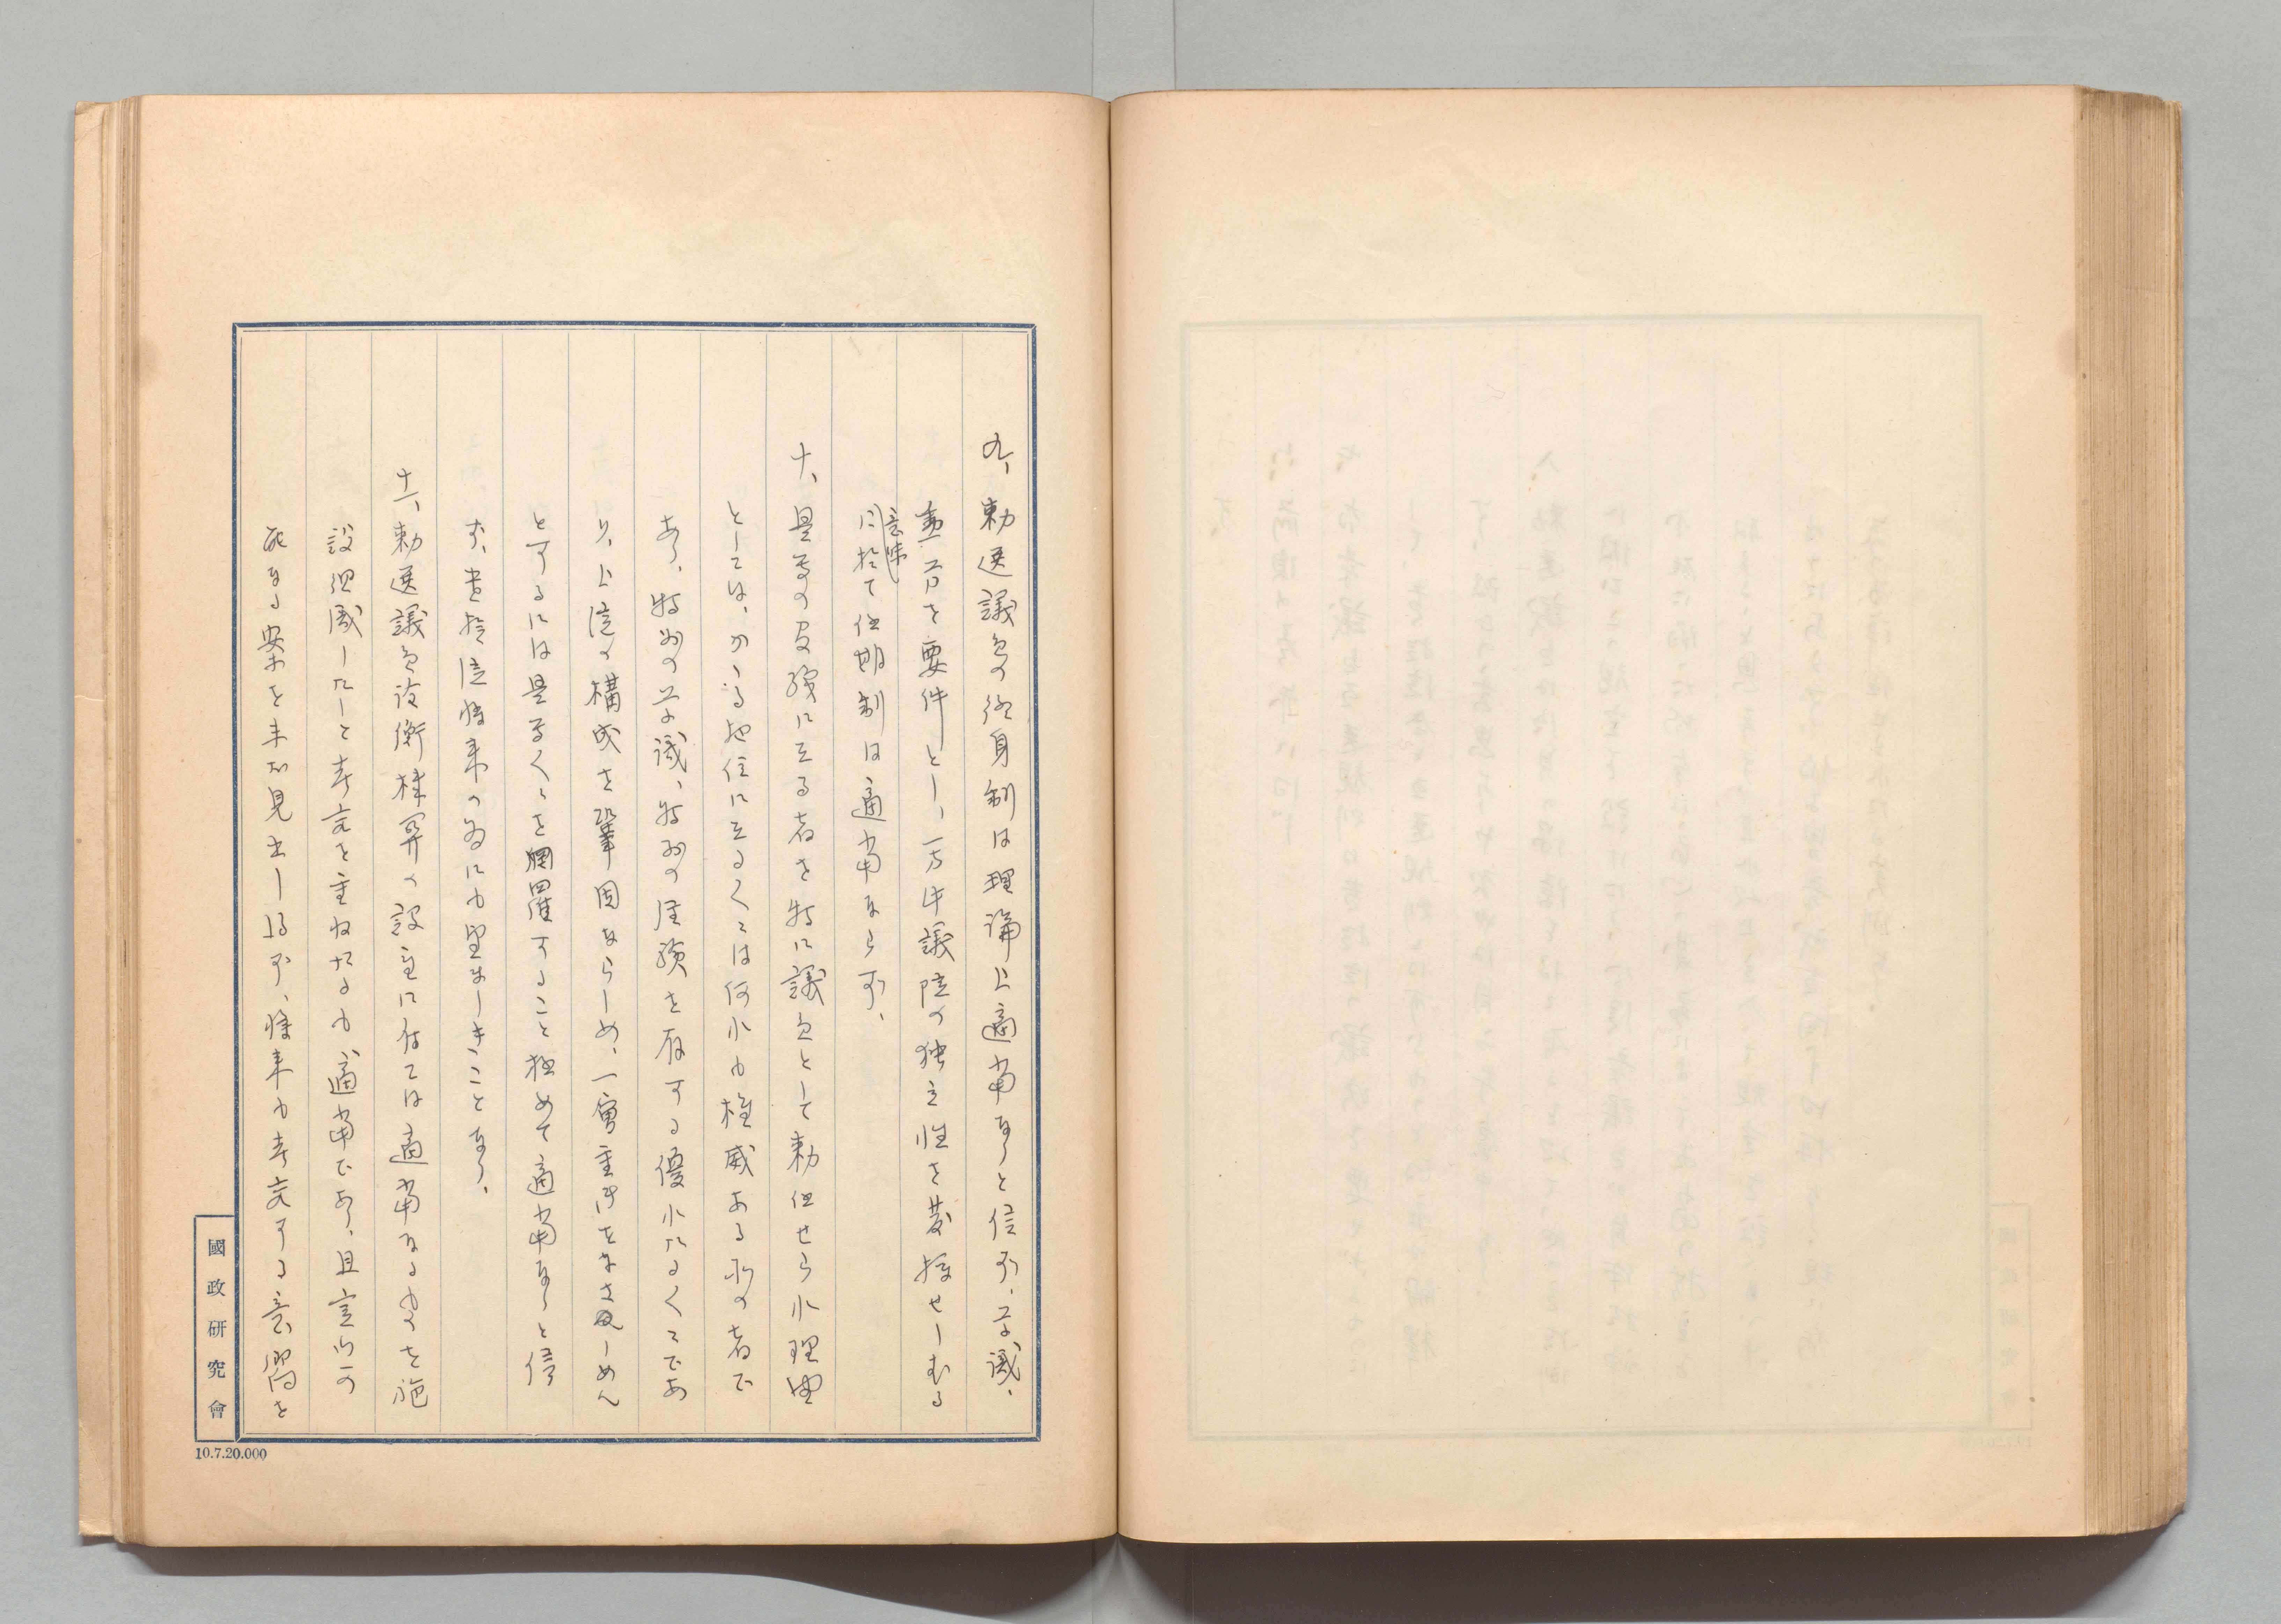 九、勅選議員の終身制は理論上適当なりと信ず、学識、
重厚を要件とし、一方件議院の独立性を発揮せしむる
意味
に於て任期制は適当ならず、
十、是等の官職に在る者を特に議員として勅任せられ理由
としては、かゝる地位に在る人々は何れも権威ある所の者で
あり、特別の学識、特別の経験を有する優れたる人々であ
り、上院の構成を鞏固ならしめ、一層重きをなさしめん
とするには是等人々を網羅すること極めて適当なりと信
ず、貴族院将来の為にも望ましきことなり、
十一、勅選議員詮衡機関の設置に付ては適当なるものを施
設組織したしと考究を重ねたるも適当であり、且実行可
能なる案を未だ見出し得ず、将来も考究する意嚮を
國政研究會
10.7.20.000